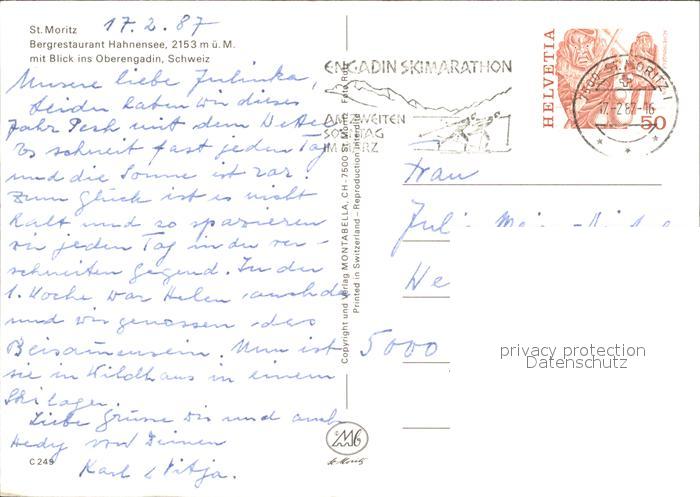 St. Moritz 17.2.87
Bergrestaurant Hahnensee, 2153 m ü. M.
mit Blick ins Oberengadin, Schweiz
Unsere liebe Julinka,
leider haben wir dieses
Jahr Pech mit dem Wetter
Es schneit fast jeden Tag
und die Sonne ist rar.
Zum Glück ist es nicht
kalt und so spazieren
wir jeden Tag in der ver-
schneiten Gegend. In der
1. Woche war Helen auch da
und wir genossen das
Beisammensein. Nun ist
sie in Wildhaus in einem
Skilager.
Liebe Grüsse Dir und auch
Hedy von Deinen
Karl &
C 249
Copyright und Verlag MONTABELLA, CH-7500 St. Moritz, Foto
Printed in Switzerland - Reproduction interdite
ENGADIN SKIMARATHON
AM ZWEITEN
SONNTAG
IM MÄRZ
HELVETIA
50
7500 ST. MORITZ 1
17.-2.87-16
Frau
5000
privacy protection
Datenschutz
St. Moritz